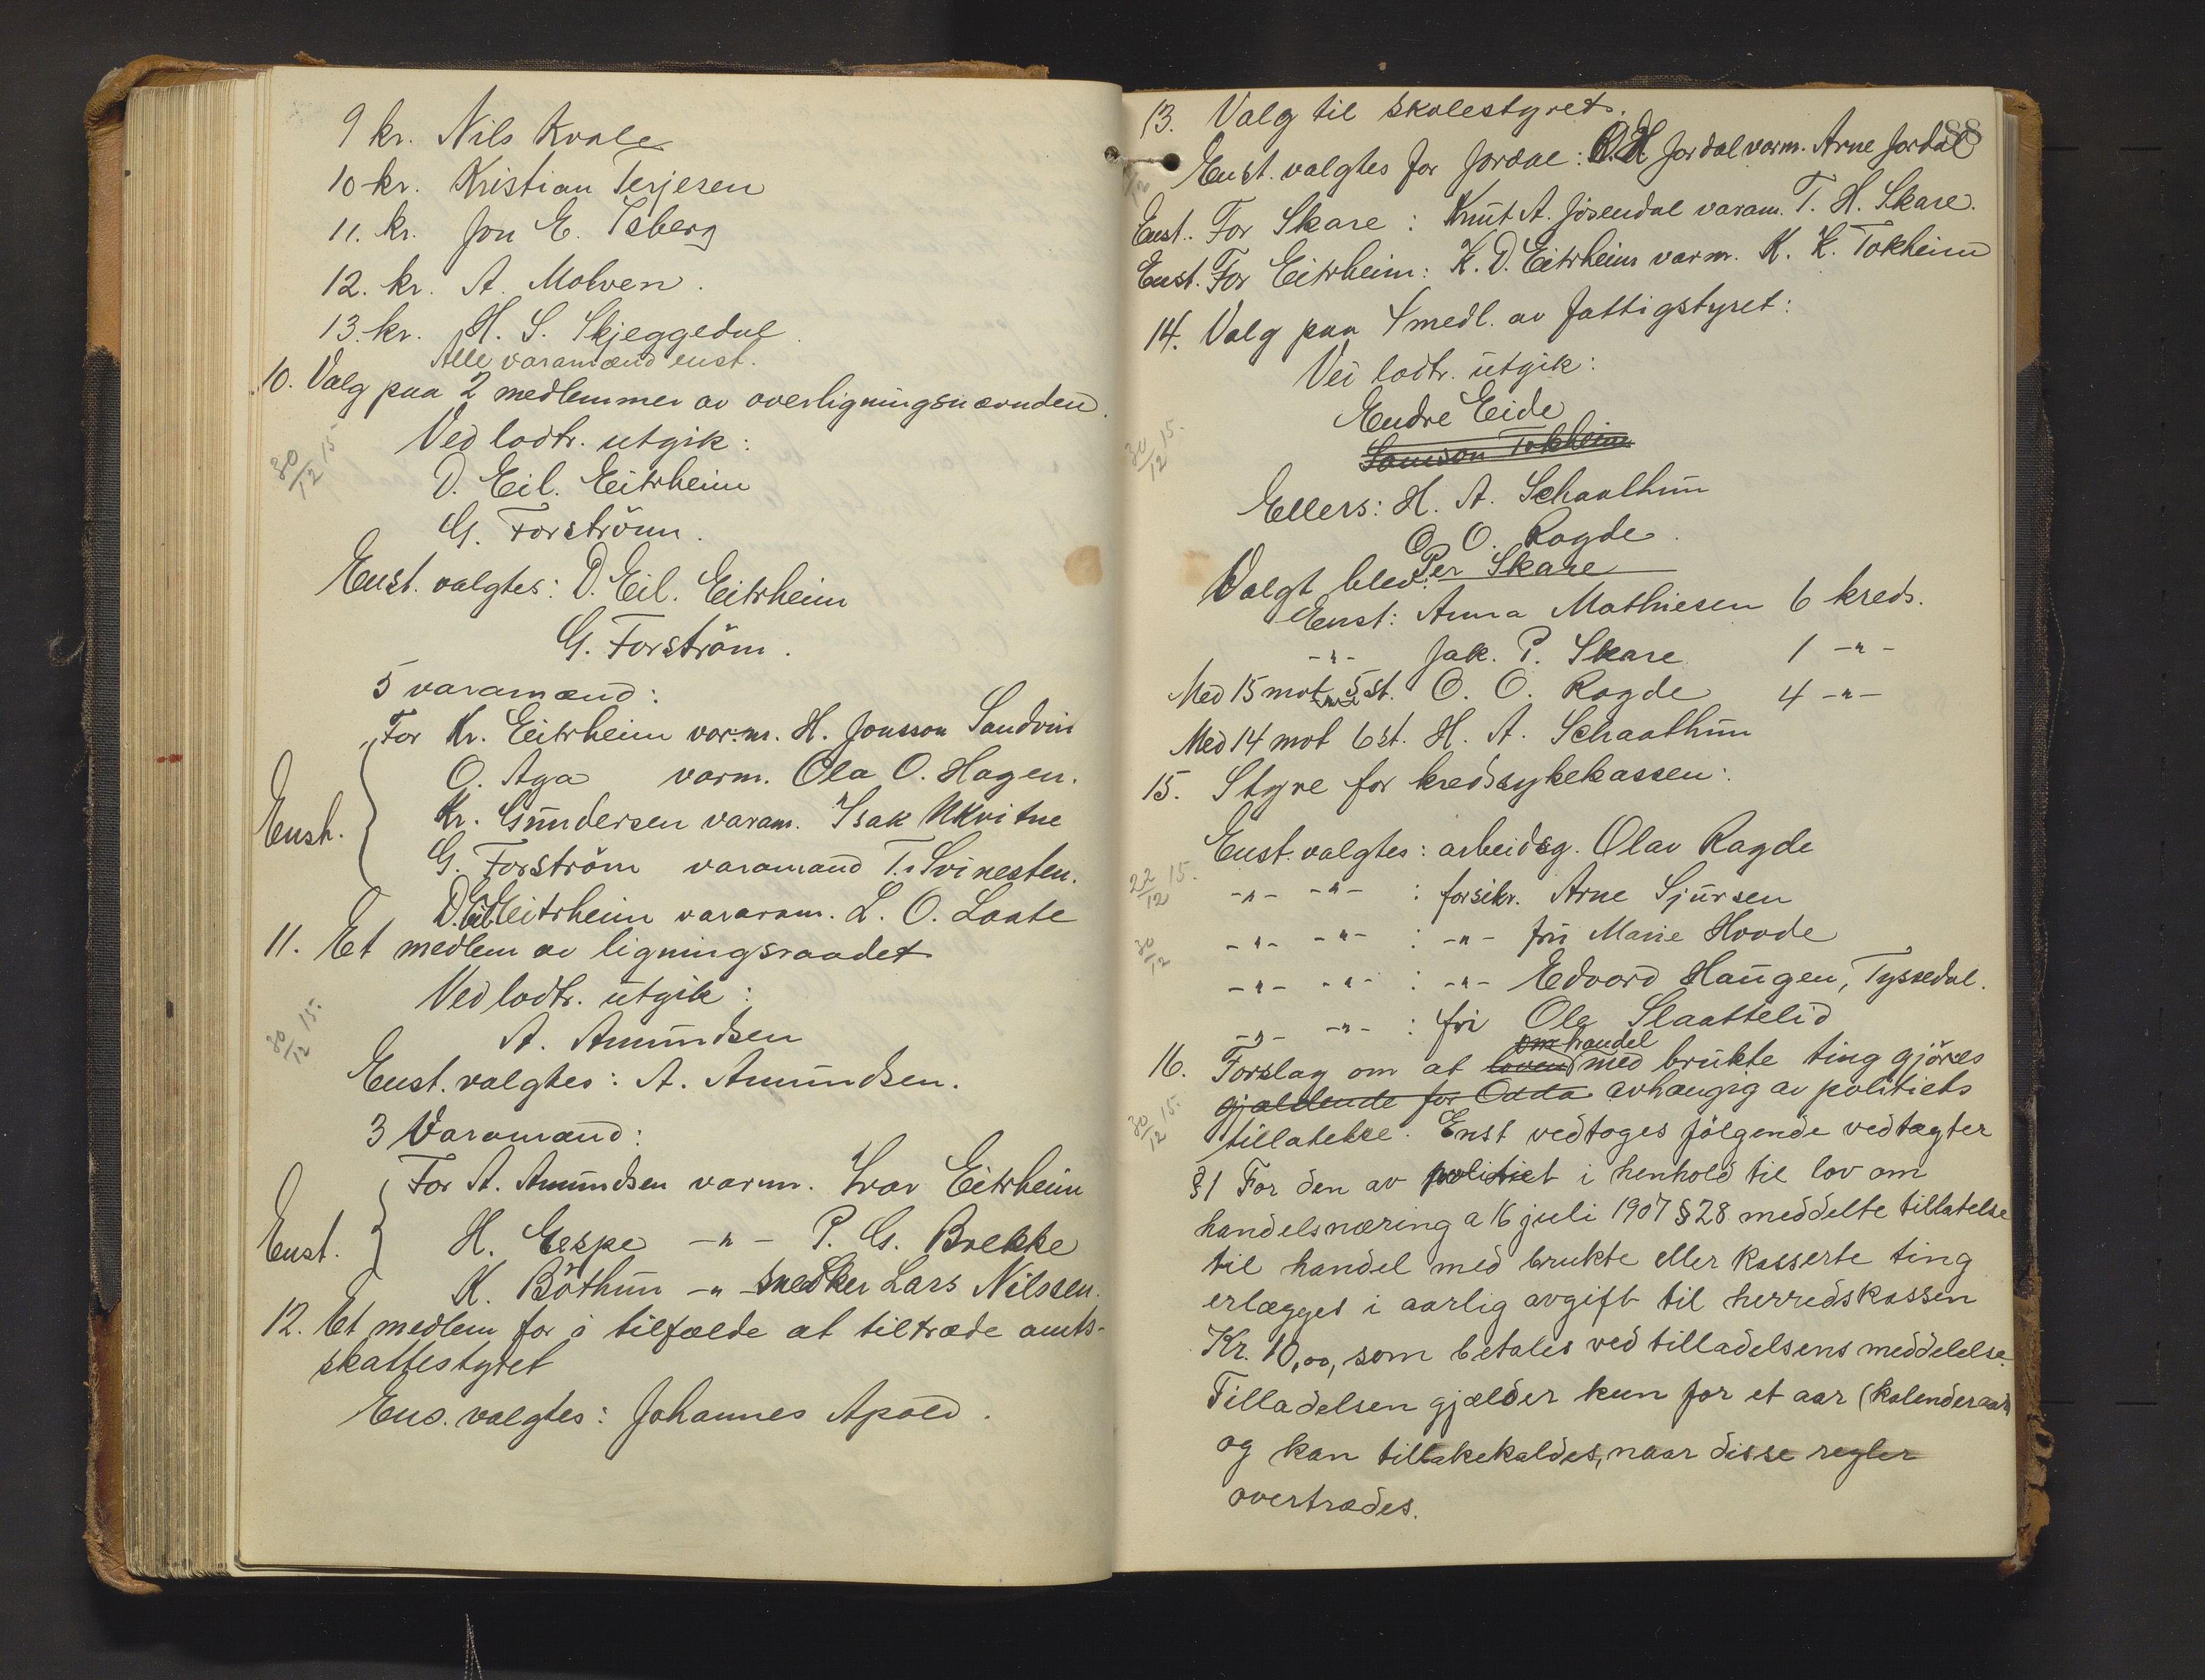 9 kr. Nils Kvale
10 kr. Kristian Terjesen
11. kr. Jon E. Isberg
12. kr. A. Molven.
13. kr. H. S. Skjeggedal.
Alle varamænd enst.
10. Valg paa 2 medlemmer av overligningsnævnden.
30/12 15.
Ved lodtr. utgik:
D. Eil. Eitrheim
G. Forström.
Enst. valgtes: D. Eil. Eitrheim
G. Forström.
5 varamænd:
For Kr. Eitrheim varm. H. Jonsson Sandvin
O. Aga varm. Ola O. Hagen.
Enst.
Kr. Gundersen varam. Isak Ukvitne
G. Forström varamand T. Svinesten.
D. Eil. Eitrheim vararam. L. O. Laate
11. Et medlem av ligningsraadet
Ved lodtr. utgik:
30/12 15.
A. Amundsen
Enst. valgtes: A. Amundsen.
3 Varamænd:
For A. Amundsen varm. Ivar Eitrheim
Enst.
H. Espe -"- P. G. Brekke
K. Böthun -"- snedker Lars Nilssen.
12. Et medlem for i tilfælde at tiltræde amts-
skattestyret
Ens. valgtes: Johannes Apold.
88
13. Valg til skolestyret.
Enst. valgtes for Jordal: O. H. Jordal varm. Arne Jordal
Enst. For Skare: Knut A. Jösendal varam. T. H. Skare.
Enst. For Eitrheim: K. D. Eitrheim varm. K. K. Tokheim
14. Valg paa 4 medl. av fattigstyret:
Ved lodtr. utgik:
Endre Eide
30/12 15.
Samson Tokheim
Ellers: H. A. Schaalhun
O. O. Ragde.
Per Skare
Valgt blev:
Enst: Anna Mathiesen 6 kreds.
-"- Jak. P. Skare 1 -"-
Med 15 mot 5 st. O. O. Ragde 4 -"-
Med 14 mot 6 st. H. A. Schaathun
15. Styre for kredssykekassen:
Enst. valgtes: arbeidsg. Olav Ragde
22/12 15.
-"- -"- : forsikr. Arne Sjursen
30/12
-"- -"- : -"- fru Marie Hovde
-"- -"- : -"- Edvard Haugen, Tyssedal.
-"- -"- : fri Ole Slaattelid
om handel
16. Forslag om at loven med brukte ting gjöres
30/12 15.
gjældende for Odda avhængig av politiets
tillatelse. Enst vedtoges fölgende vedtægter
§1 For den av politiet i henhold til lov om
handelsnæring a 16 juli 1907 §28 meddelte tillatelse
til handel med brukte eller kasserte ting
erlægges i aarlig avgift til herredskassen
Kr. 10,00, som betales ved tilladelsens meddelelse.
Tilladelsen gjælder kun for et aar (kalenderaar)
og kan tilbakekaldes, naar disse regler
overtrædes.